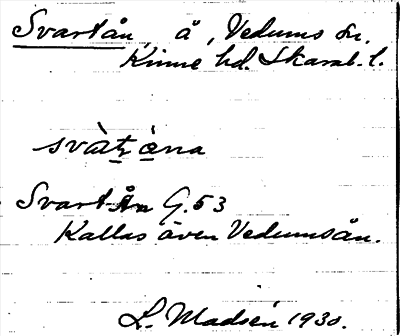 Svartån, å, Vedums sn.
Kinne hd. Skarab. l.
svàt̤ ə̀na
Svartån G. 53
Kallas även Vedumsån.
L. Madsén 1930.